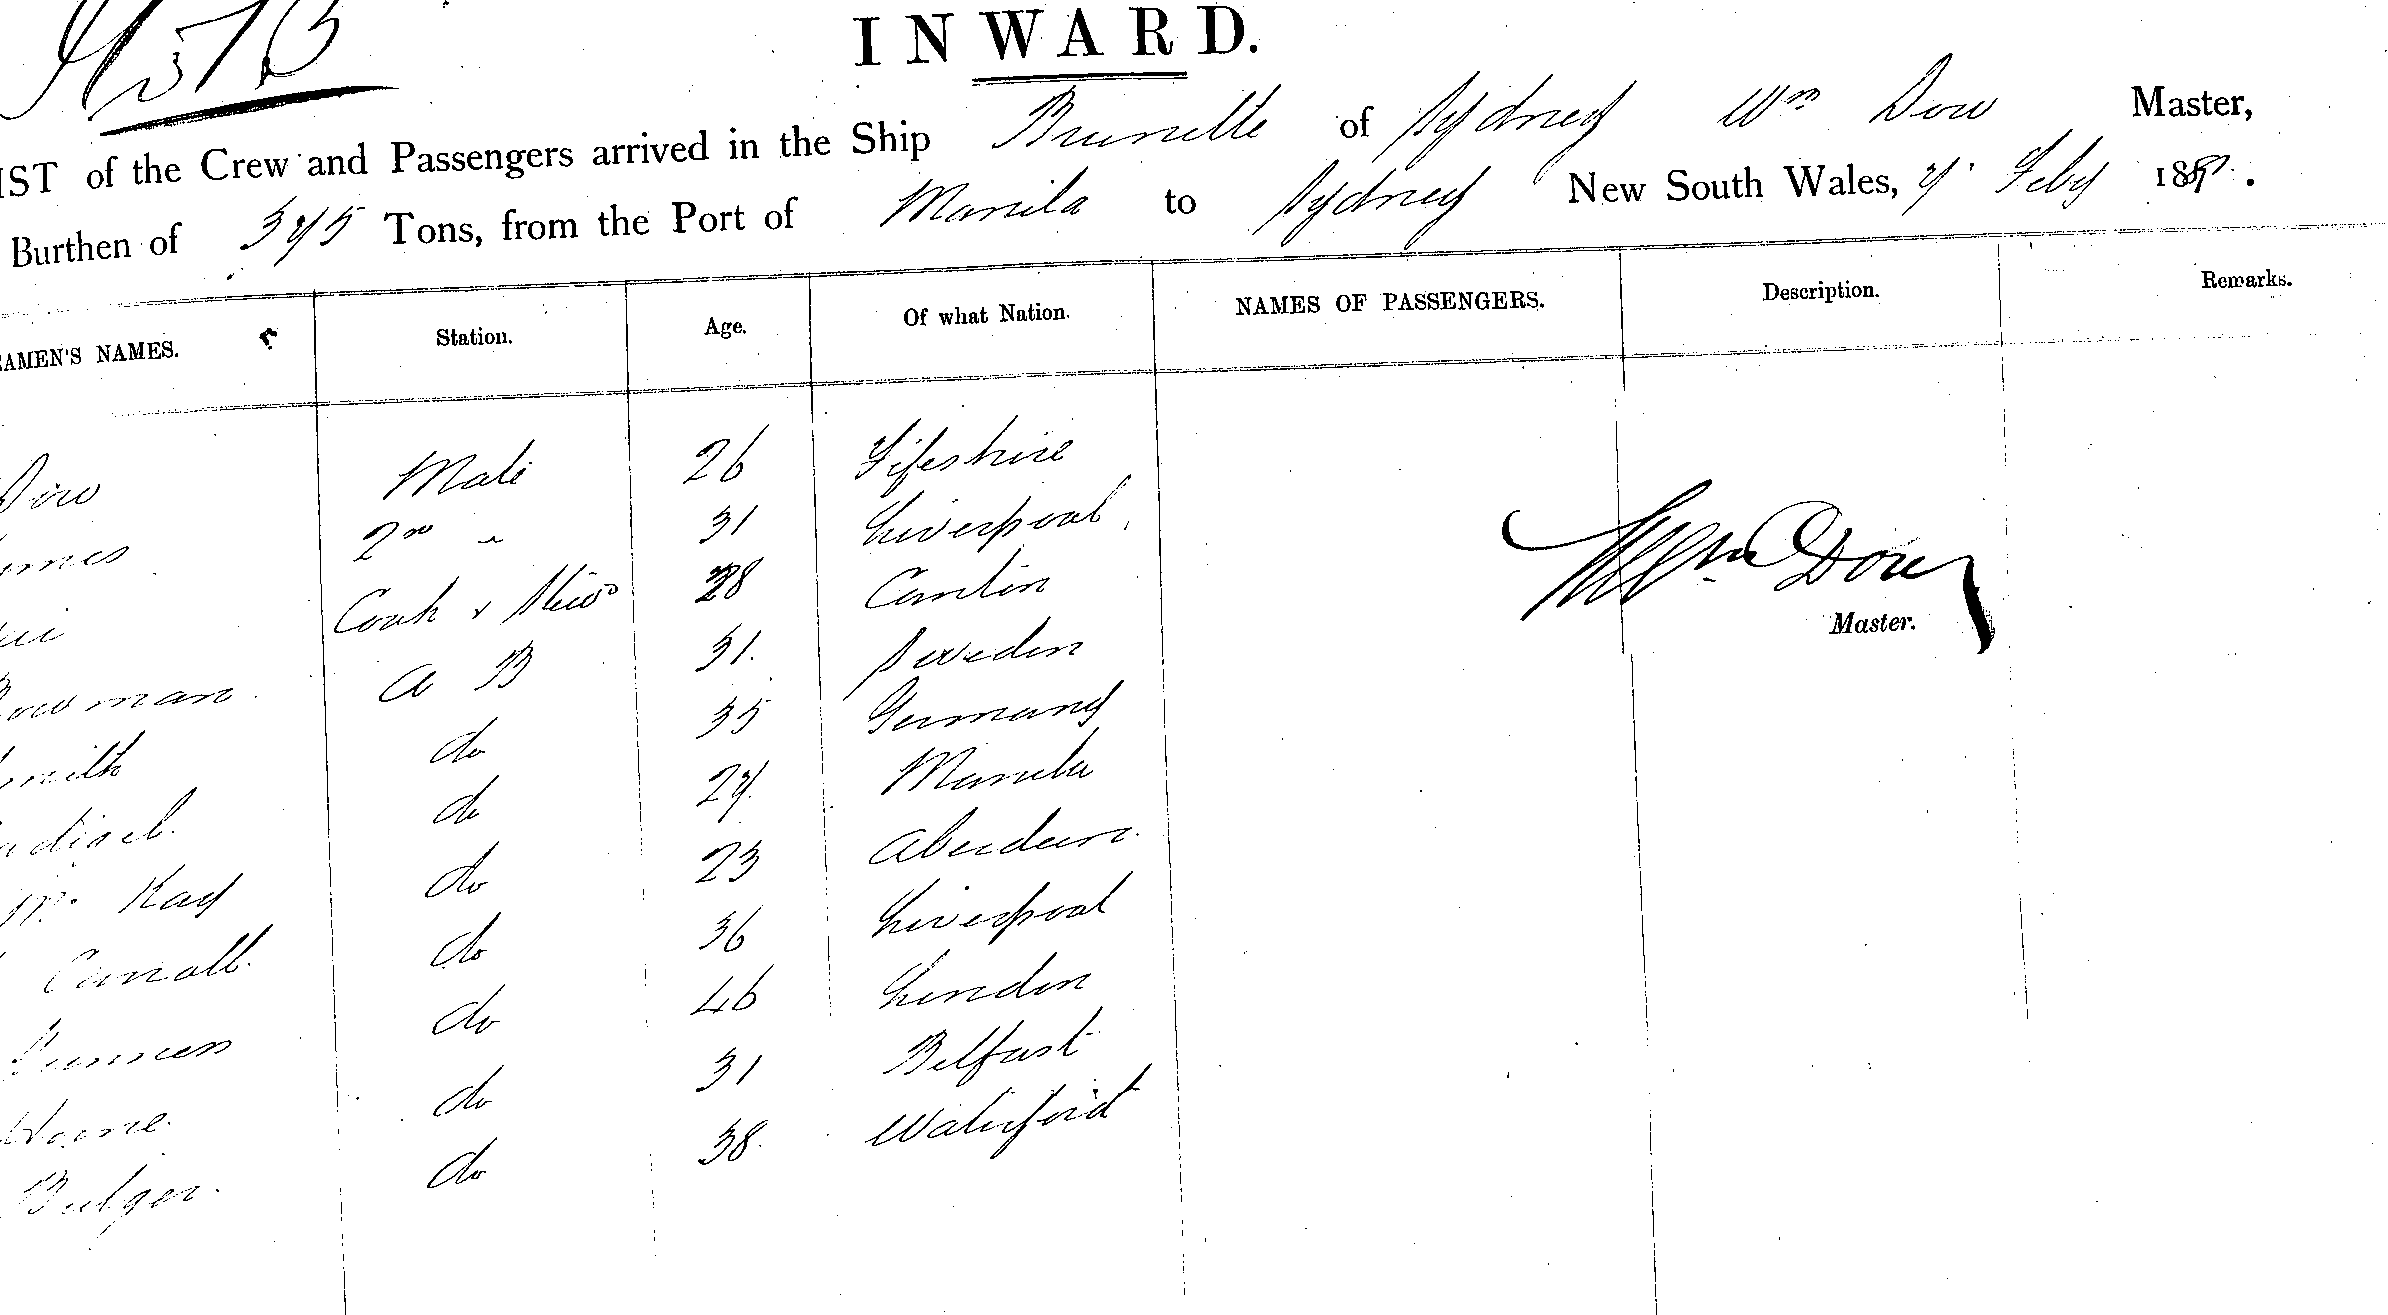 INWARD.
IST of the Crew and Passengers arrived in the Ship Brunette of Sydney Wm Dow Master,
Burthen of 375 Tons, from the Port of Manila to Sydney New South Wales, 7 Feby 188 .
EAMEN'S NAMES. Station. Age. Of what Nation. NAMES OF PASSENGERS. Description. Remarks.
Dow Mate 26 Fifeshire
2nd " 31 Liverpool
Cook & Stewd 28 Canton
owman A B 31. Sweden
Smith do 35 Germany
do 27. Manila
Mc Kay do 23 Aberdeen
Carroll do 36 Liverpool
do 46 London
do 31 Belfast
Bulger do 38. Waterford
Wm Dow
Master.